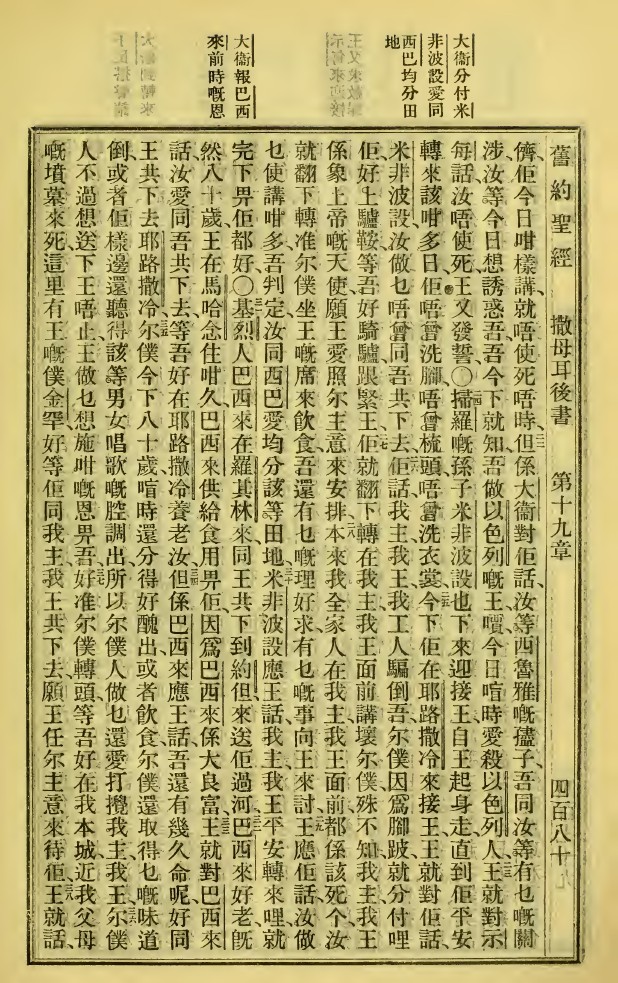 大衞分付米
非波設愛同
西巴均分田
地
大衞報巴西
來前時嘅恩
舊約聖經 撒母耳後書 第十九章 四百八十
儕佢今日咁樣講就唔使死唔時但係大衞對佢話汝等西魯雅嘅孻子吾同汝等有乜嘅關
涉汝等今日想誘惑吾吾今下就知吾做以色列嘅王嚽今日喧時愛殺以色列人王就對示
每話汝唔使死王又發誓〇掃羅嘅孫子米非波設也下來迎接王自王起身走直到佢平安
轉來該咁多日佢唔曾洗腳唔曾梳頭唔曾洗衣裳今下佢在耶路撒冷來接王王就對佢話
米非波設汝做乜唔曾同吾共下去佢話我主我王我工人騙倒吾尔僕因爲腳跛就分付哩
佢好上驢鞍等吾好騎驢跟緊王佢就翻下轉在我主我王面前講壞尔僕殊不知我主我王
係象上帝嘅天使願王愛照尔主意來安排本來我全家人在我主我王面前都係該死个汝
就翻下轉准尔僕坐王嘅席來飲食吾還有乜嘅理好求有乜嘅事向王來討王應佢話汝做
乜使講咁多吾判定汝同西巴愛均分該等田地米非波設應王話我主我王平安轉來哩就
完下畀佢都好〇基烈人巴西來在羅其林來同王共下到約但來送佢過河巴西來好老旣
然八十歲王在馬哈念住咁久巴西來供給食用畀佢因爲巴西來係大良富王就對巴西來
話汝愛同吾共下去等吾好在耶路撒冷養老汝但係巴西來應王話吾還有幾久命呢好同
王共下去耶路撒冷尔僕今下八十歲喧時還分得好醜出或者飲食尔僕還取得乜嘅味道
倒或者佢樣邊還聽得該等男女唱歌嘅腔調出所以尔僕人做乜還愛打攪我主我王尔僕
人不過想送下王唔止王做乜想施咁嘅恩畀吾好准尔僕轉頭等吾好在我本城近我父母
嘅墳墓來死這里有王嘅僕金罕好等佢同我主我王共下去願王任尔主意來待佢王就話